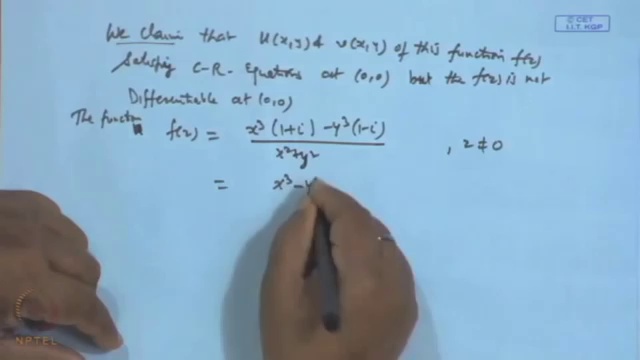 © CET
I.I.T. KGP
We claim that u(x,y) & v(x,y) of this function f(z)
Satisfying C-R- Equations at (0,0) but the f(z) is not
Differentiable at (0,0)
The function f(z) = x³(1+i) - y³(1-i) / x²+y² , z ≠ 0
= x³ - y
NPTEL